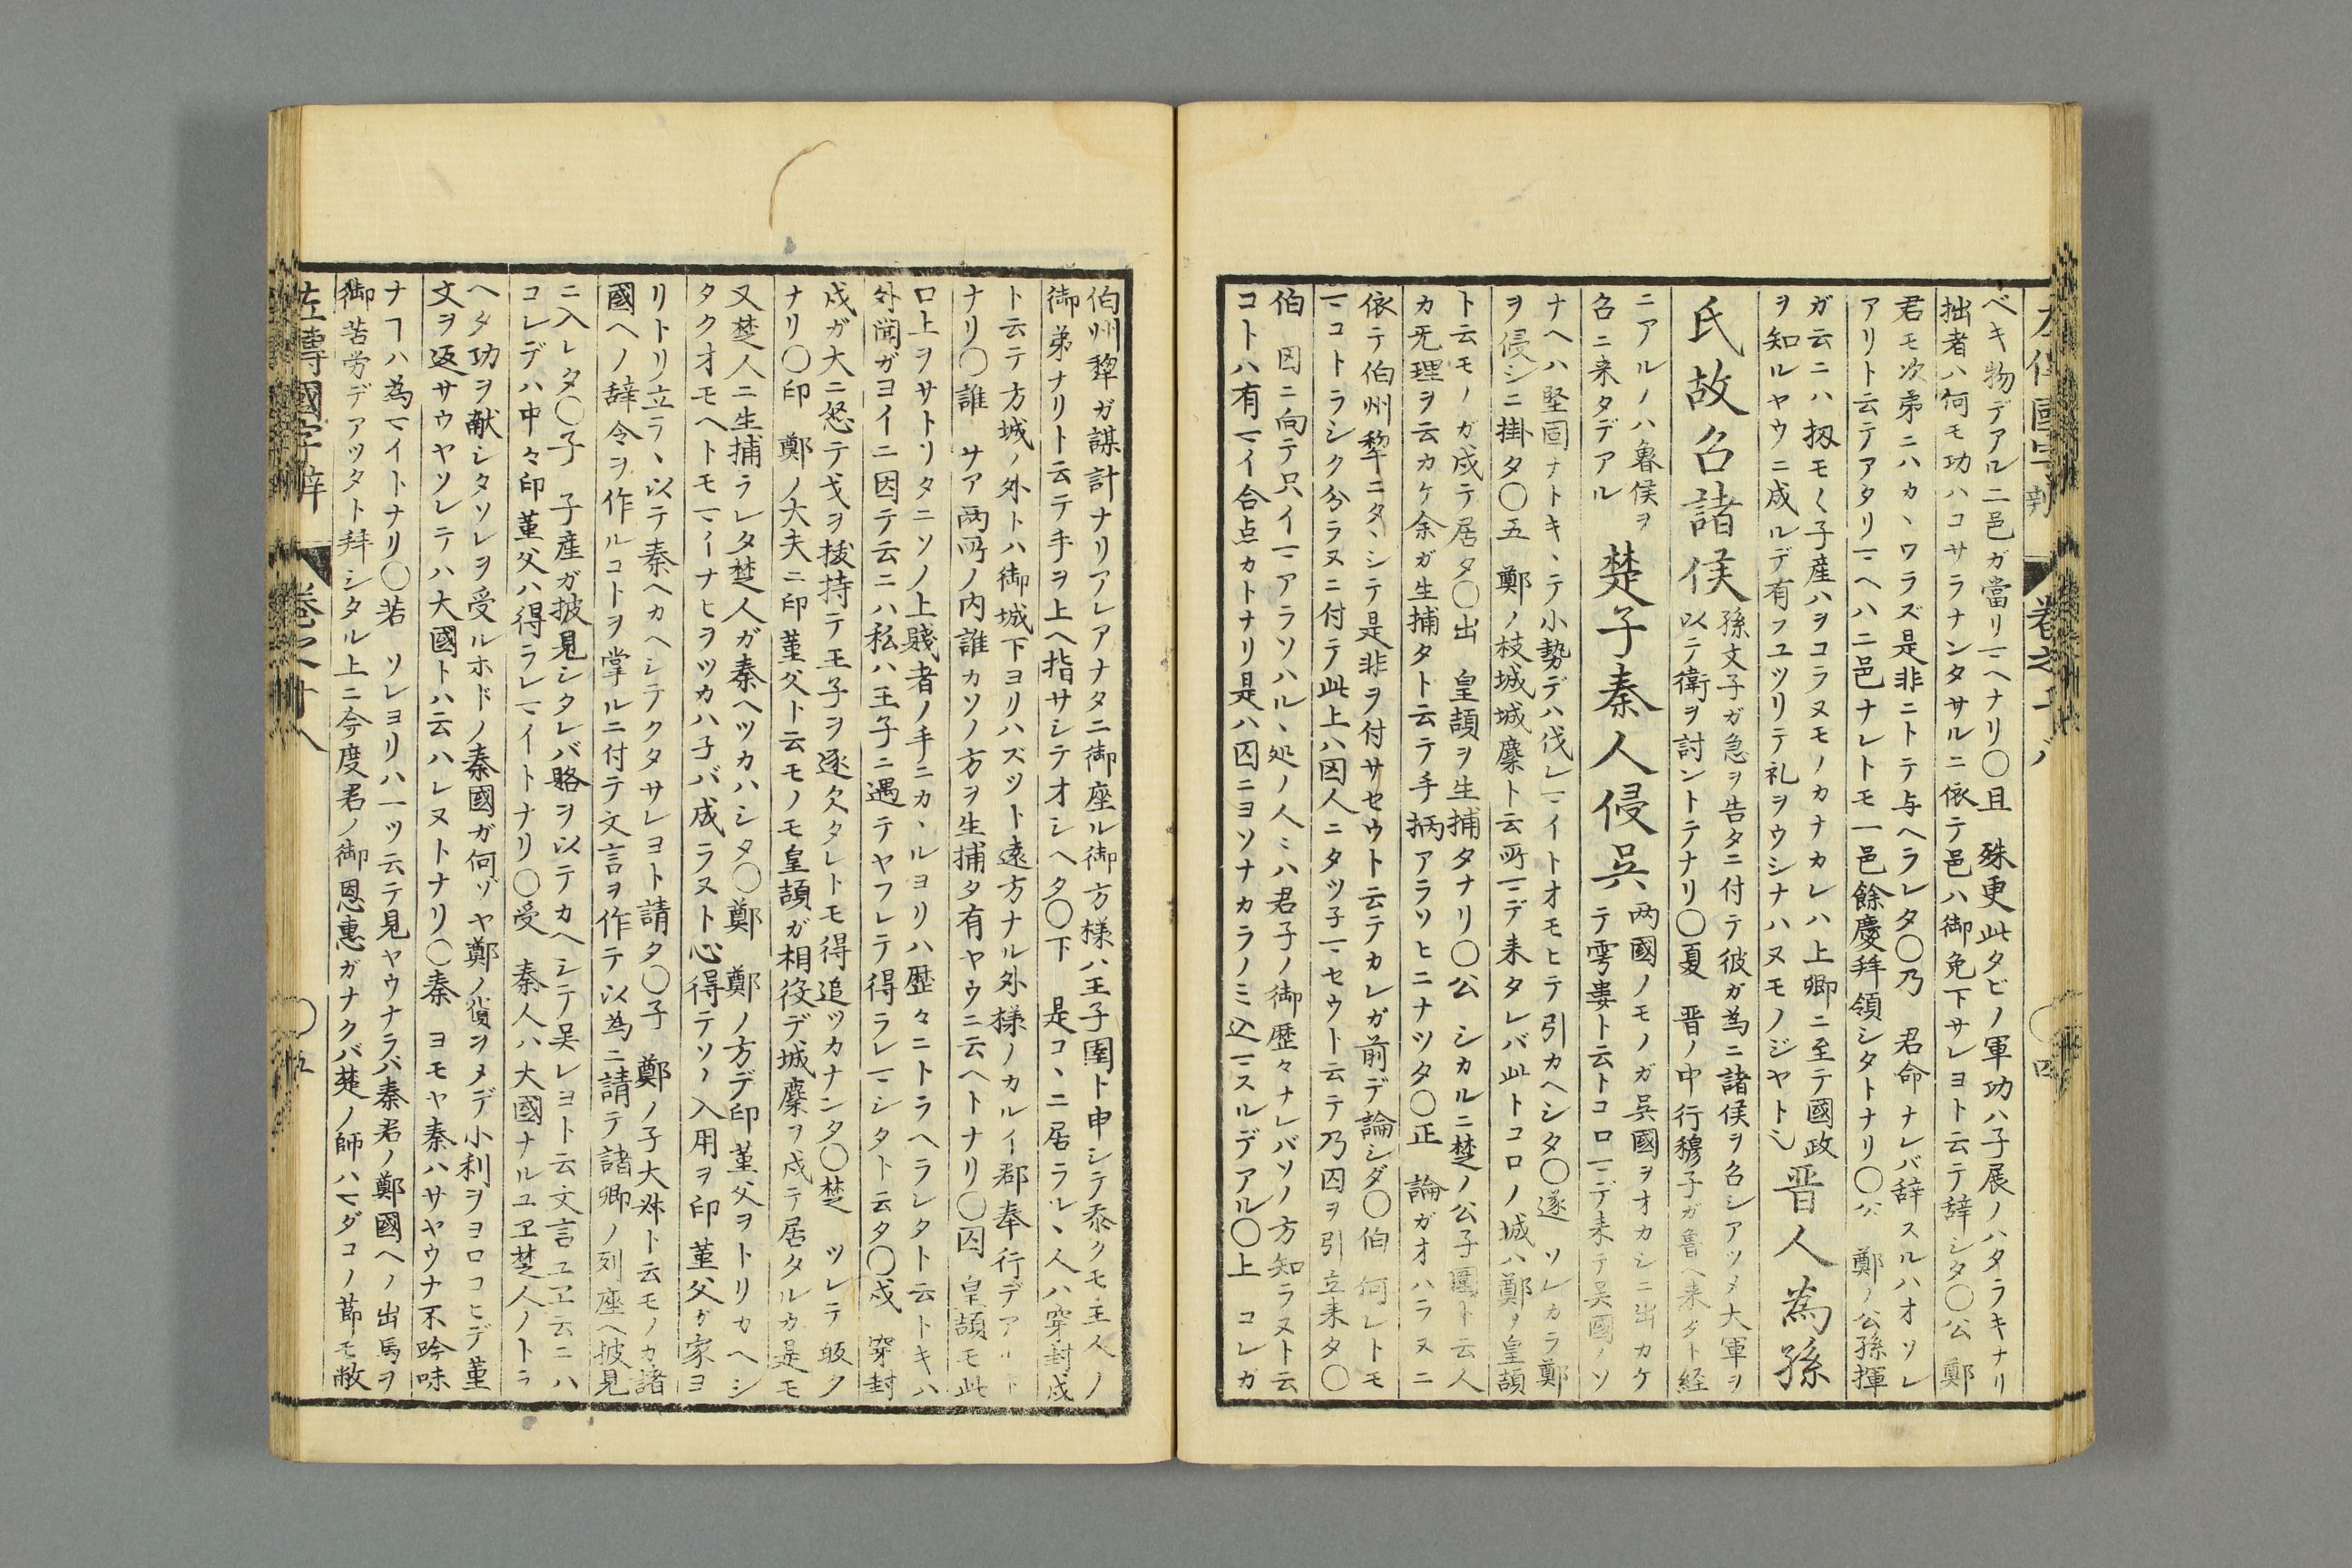 ベキ物デアル二邑ガ當リマヘナリ〇且　殊更此タビノ軍功ハ子展ノハタラキナリ
拙者ハ何モ功ハコサラナンタサルニ依テ邑ハ御免下サレヨト云テ辞シタ〇公　鄭
君モ次第ニハカヽワラズ是非ニトテ与ヘラレタ〇乃　君命ナレバ辞スルハオソレ
アリト云テアタリマヘハ二邑ナレトモ一邑餘慶拜領シタトナリ〇公　鄭ノ公孫揮
ガ云ニハ扨モ〱子産ハヲコラヌモノカナカレハ上卿ニ至テ國政
ヲ知ルヤウニ成ルデ有フユツリテ礼ヲウシナハヌモノジヤトシ
晋人為孫
氏故召諸侯
孫文子ガ急ヲ告タニ付テ彼ガ為ニ諸侯ヲ召シアツメ大軍ヲ
以テ衛ヲ討ントテナリ〇夏　晋ノ中行穆子ガ魯ヘ来タト経
ニアルノハ魯侯ヲ
召ニ来タデアル
楚子秦人侵呉
两國ノモノガ呉國ヲオカシニ出カケ
テ雩婁ト云トコロマデ来テ呉國ノソ
ナヘハ堅固ナトキヽテ小勢デハ伐レマイトオモヒテ引カヘシタ〇遂　ソレカラ鄭
ヲ侵シニ掛タ〇五　鄭ノ枝城城麇ト云所マデ来タレバ此トコロノ城ハ鄭ノ皇頡
ト云モノガ戍テ居タ〇出　皇頡ヲ生捕タナリ〇公　シカルニ楚ノ公子圍ト云人
カ无理ヲ云カケ余ガ生捕タト云テ手柄アラソヒニナツタ〇正　論ガオハラヌニ
依テ伯州犂ニタヽシテ是非ヲ付サセウト云テカレガ前デ論シダ〇伯　何レトモ
マコトラシク分ラヌニ付テ此上ハ囚人ニタツ子マセウト云テ乃囚ヲ引立来タ〇
伯　囚ニ向テ只イマアラソハルヽ処ノ人ミハ君子ノ御歴々ナレバソノ方知ラヌト云
コトハ有マイ合点カトナリ是ハ囚ニヨソナカラノミ込マスルデアル〇上　コレガ
伯州犂ガ謀計ナリアレアナタニ御座ル御方様ハ王子圍ト申シテ忝クモ主人ノ
御弟ナリト云テ手ヲ上ヘ指サシテオシヘタ〇下　是コヽニ居ラルヽ人ハ穿封戍
ト云テ方城ノ外トハ御城下ヨリハズツト遠方ナル外様ノカルイ郡奉行デアルト
ナリ〇誰　サア两所ノ内誰カソノ方ヲ生捕タ有ヤウニ云ヘトナリ〇囚　皇頡モ此
口上ヲサトリタニソノ上賤者ノ手ニカヽルヨリハ歴々ニトラヘラレタト云トキハ
外聞ガヨイニ因テ云ニハ私ハ王子ニ遇テヤフレテ得ラレマシタト云タ〇戍　穿封
戍ガ大ニ怒テ戈ヲ拔持テ王子ヲ逐欠タレトモ得追ツカナンタ〇楚　ツレテ皈タ
ナリ〇印　鄭ノ大夫ニ印菫父ト云モノモ皇頡ガ相役デ城麇ヲ戍テ居タルカ是モ
又楚人ニ生捕ラレタ楚人ガ秦ヘツカハシタ〇鄭　鄭ノ方デ印菫父ヲトリカヘシ
タクオモヘトモマイナヒヲツカハ子バ成ラヌト心得テソノ入用ヲ印菫父ガ家ヨ
リトリ立テヽ以テ秦ヘカヘシテクタサレヨト請タ〇子　鄭ノ子大叔ト云モノカ諸
國ヘノ辞令ヲ作ルコトヲ掌ルニ付テ文言ヲ作テ以為ニ請テ諸卿ノ列座ヘ披見
ニ入レタ〇子　子産ガ披見シタレバ賂ヲ以テカヘシテ呉レヨト云文言ユヱ云ニハ
コレデハ中々印菫父ハ得ラレマイトナリ〇受　秦人ハ大國ナルユヱ楚人ノトラ
ヘタ功ヲ献シタソレヲ受ルホドノ秦國ガ何ゾヤ鄭ノ貨ヲメデ小利ヲヨロコヒデ菫
文ヲ返サウヤソレテハ大國トハ云ハレヌトナリ〇秦　ヨモヤ秦ハサヤウナ不吟味
ナヿハ為マイトナリ〇若　ソレヨリハ一ツ云テ見ヤウナラバ秦君ノ鄭國ヘノ出馬ヲ
御苦労デアツタト拜シタル上ニ今度君ノ御恩惠ガナクバ楚ノ師ハマダコノ節モ敝
左傳國字辯　卷之十八　〇五